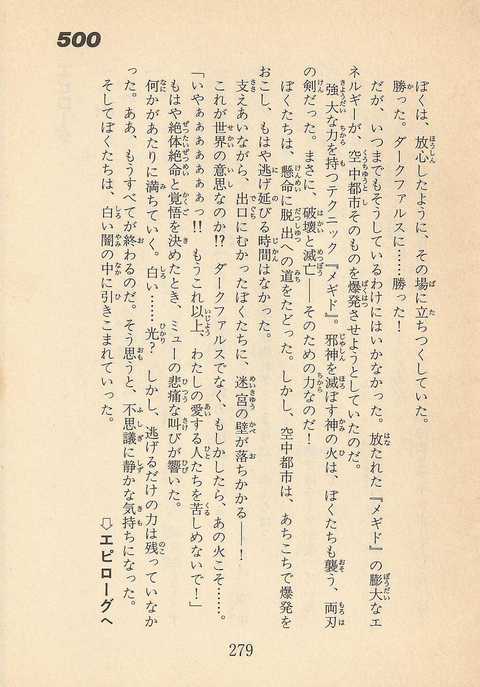 500
ぼくは、放心したように、その場に立ちつくしていた。
勝った。ダークファルスに……勝った！
だが、いつまでもそうしているわけにはいかなかった。放たれた『メギド』の膨大なエ
ネルギーが、空中都市そのものを爆発させようとしていたのだ。
強大な力を持つテクニック『メギド』。邪神を滅ぼす神の火は、ぼくたちも襲う、両刃
の剣だった。まさに、破壊と滅亡――そのための力なのだ！
ぼくたちは、懸命に脱出への道をたどった。しかし、空中都市は、あちこちで爆発を
おこし、もはや逃げ延びる時間はなかった。
支えあいながら、出口にむかったぼくたちに、迷宮の壁が落ちかかる――！
これが世界の意思なのか!?　ダークファルスでなく、もしかしたら、あの火こそ……。
「いやぁぁぁぁぁぁっ!!　もうこれ以上、わたしの愛する人たちを苦しめないで！」
もはや絶体絶命と覚悟を決めたとき、ミューの悲痛な叫びが響いた。
何かがあたりに満ちていく。白い……光？　しかし、逃げるだけの力は残っていなか
った。ああ、もうすべてが終わるのだ。そう思うと、不思議に静かな気持ちになった。
そしてぼくたちは、白い闇の中に引きこまれていった。
⇨エピローグへ
279